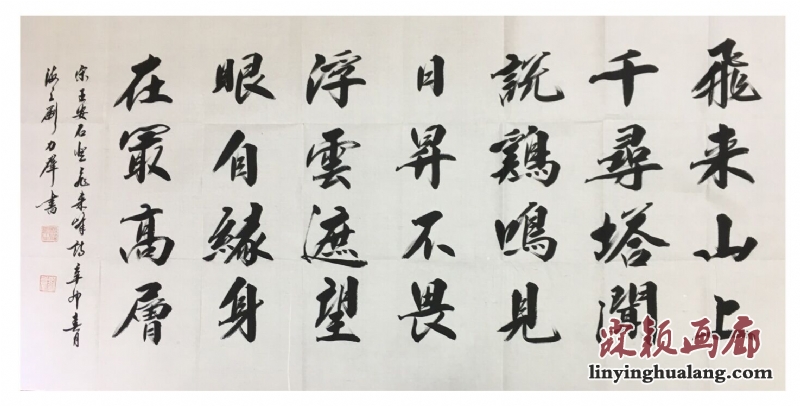 飛来山上
千尋塔聞
説鷄鳴見
日昇不畏
浮雲遮望
眼自緣身
在最高層
宋王安石登飛来峰詩辛卯春月
海上劉力群書
霖颖画廊
linyinghualang.com